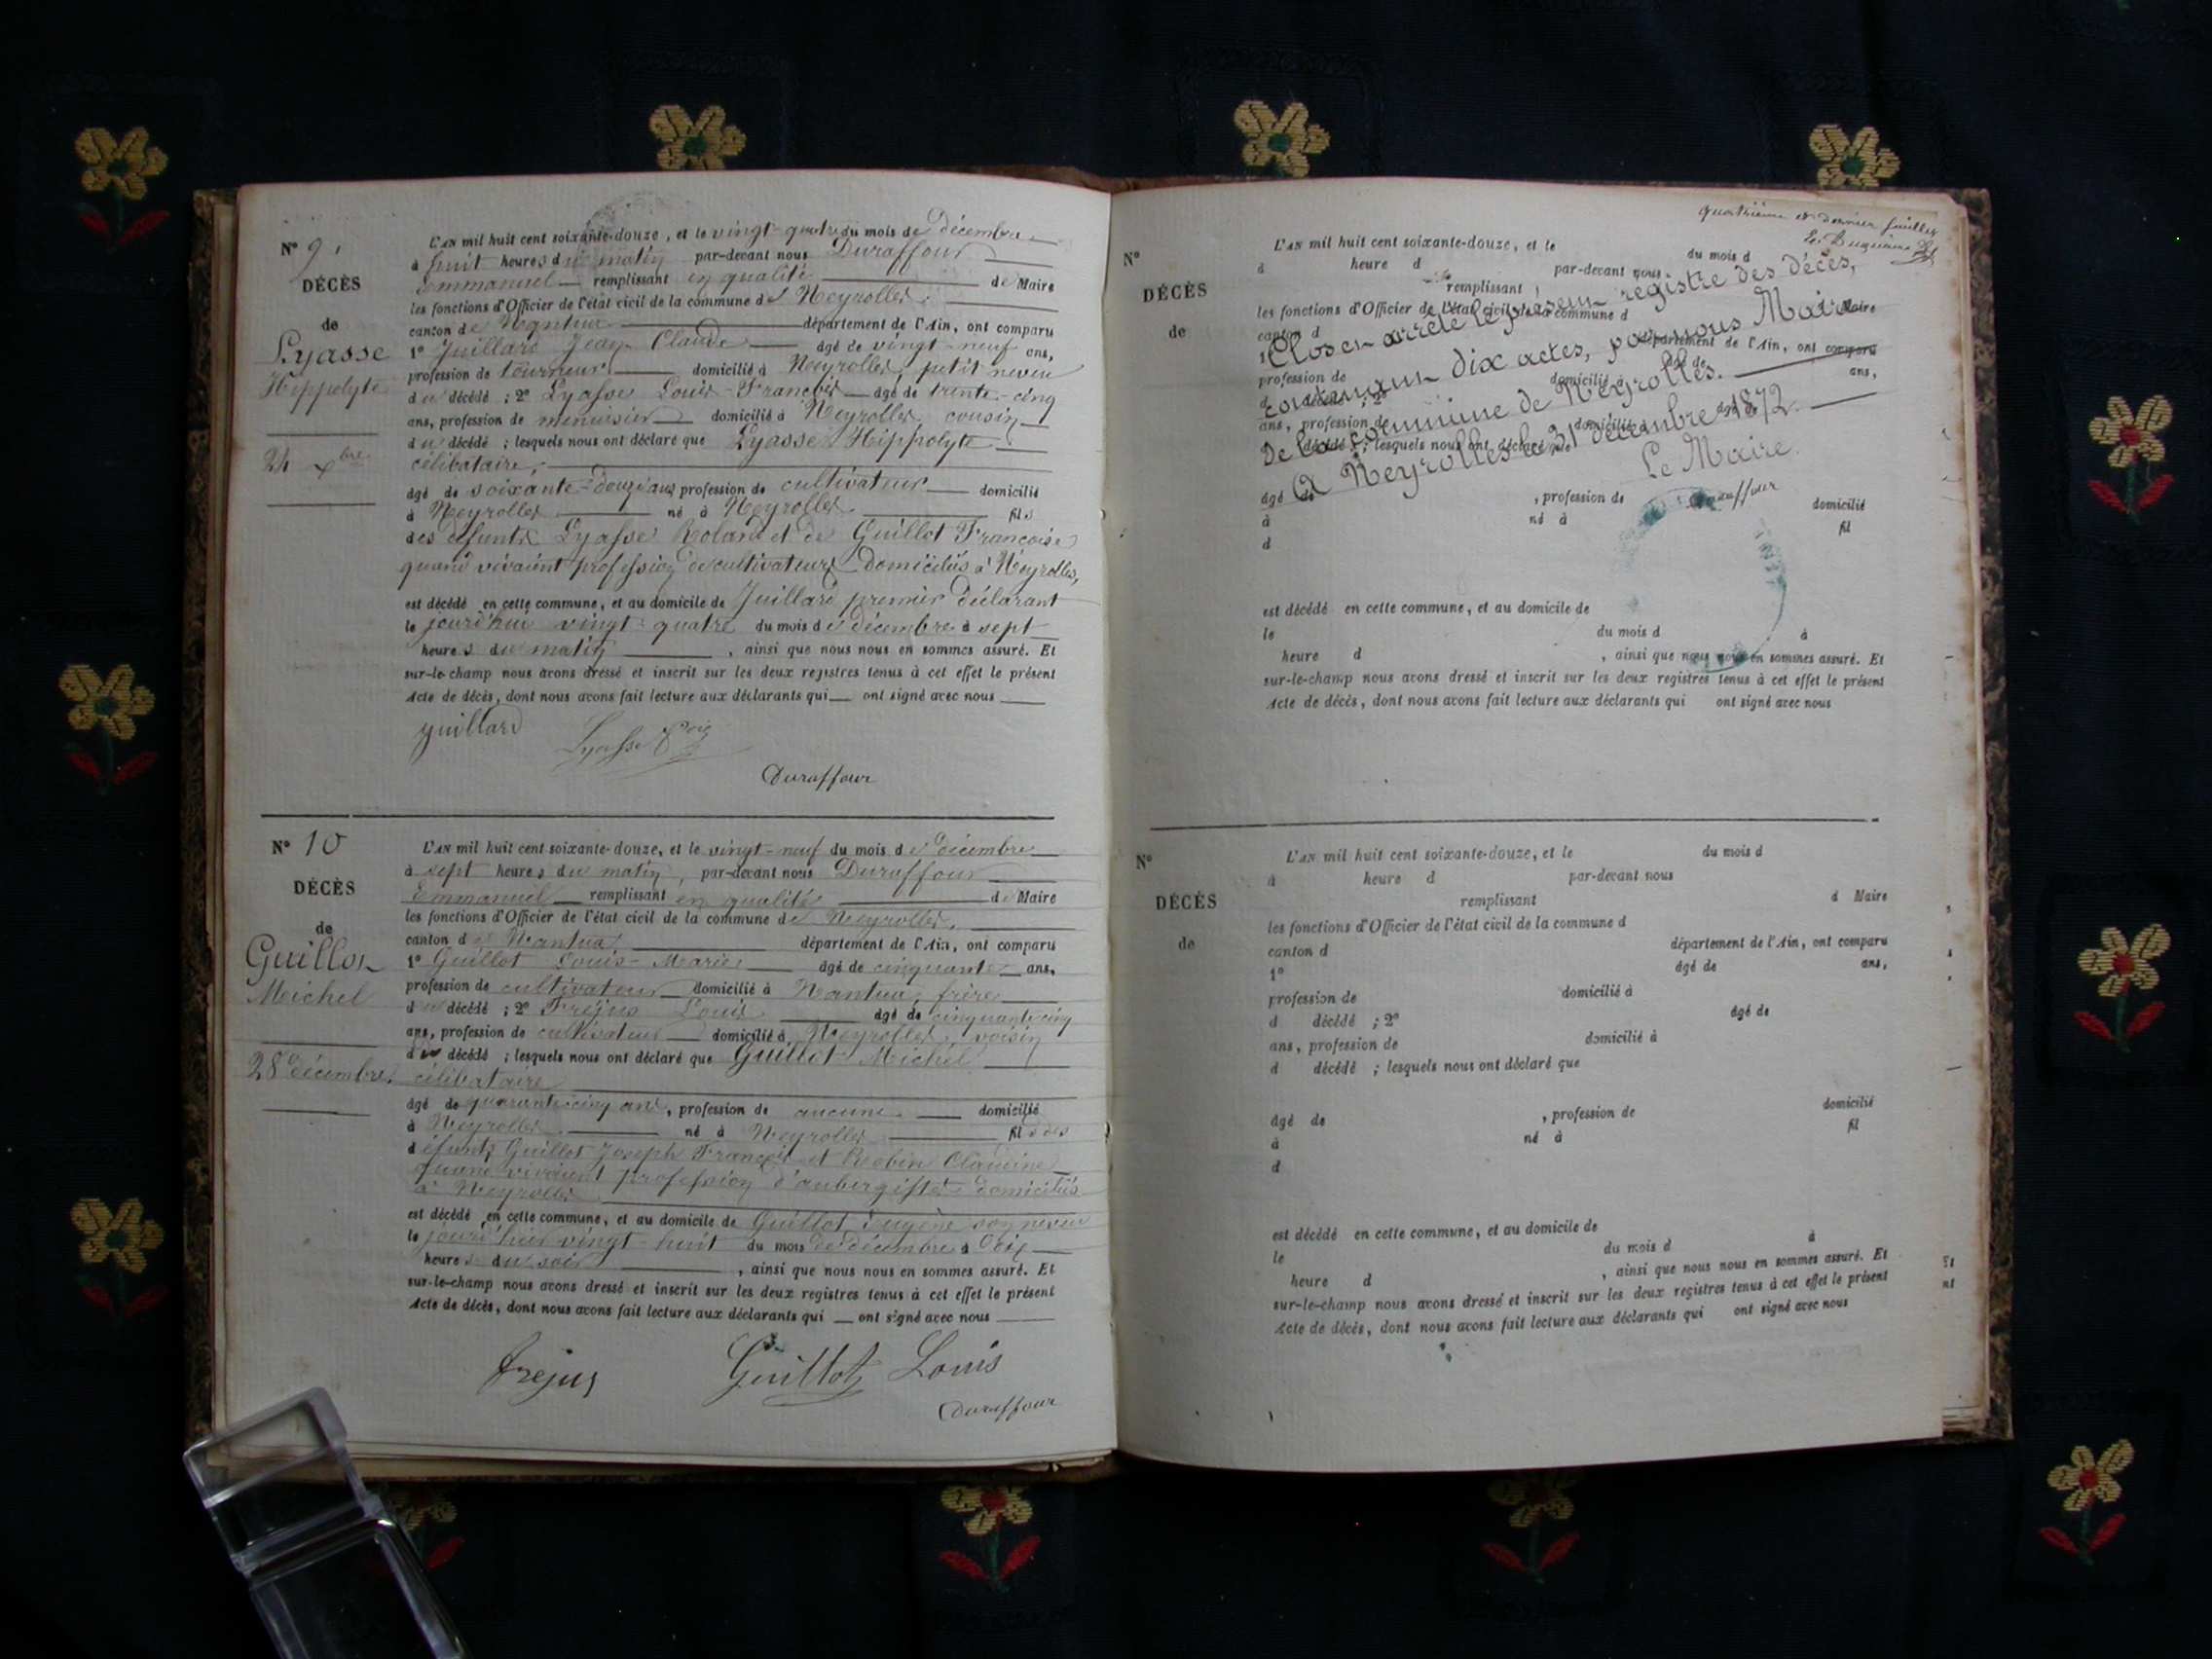 N° 9.
DÉCÈS
de
Lyasse
Hippolyte
24 xbre
L'AN mil huit cent soixante-douze, et le vingt-quatre du mois de décembre
à huit heures du matin par-devant nous Duraffour
Emmanuel remplissant en qualité de Maire
les fonctions d'Officier de l'état civil de la commune de Neyrolles,
canton de Nantua département de l'Ain, ont comparu
1° Juillard Jean Claude âgé de vingt-neuf ans,
profession de tourneur domicilié à Neyrolles, petit neveu
du décédé ; 2° Lyasse Louis-François âgé de trente-cinq
ans, profession de menuisier domicilié à Neyrolles, cousin
du décédé ; lesquels nous ont déclaré que Lyasse Hippolyte
célibataire,
âgé de soixante-douze ans, profession de cultivateur domicilié
à Neyrolles né à Neyrolles fils
des défunts Lyasse Roland et de Guillot Françoise
quand vivaient profession de cultivateurs domiciliés à Neyrolles,
est décédé en cette commune, et au domicile de Juillard premier déclarant
le jourd'hui vingt-quatre du mois de décembre à sept
heures du matin , ainsi que nous nous en sommes assuré. Et
sur-le-champ nous avons dressé et inscrit sur les deux registres tenus à cet effet le présent
Acte de décès, dont nous avons fait lecture aux déclarants qui ont signé avec nous
juillard
Lyasse
Duraffour
N° 10
DÉCÈS
de
Guillot
Michel
28 décembre
L'AN mil huit cent soixante-douze, et le vingt-neuf du mois de décembre
à sept heures du matin, par-devant nous Duraffour
Emmanuel remplissant en qualité de Maire
les fonctions d'Officier de l'état civil de la commune de Neyrolles,
canton de Nantua département de l'Ain, ont comparu
1° Guillot Louis-Marie âgé de cinquante ans,
profession de cultivateur domicilié à Nantua, frère
du décédé ; 2° Fréjus Louis âgé de cinquante cinq
ans, profession de cultivateur domicilié à Neyrolles, voisin
du décédé ; lesquels nous ont déclaré que Guillot Michel
célibataire
âgé de quarante-cinq ans, profession de aucune domicilié
à Neyrolles né à Neyrolles fils des
défunts Guillot Joseph François et Robin Claudine
quand vivaient profession d'aubergistes domiciliés
à Neyrolles
est décédé en cette commune, et au domicile de Guillot Eugène son neveu
le jourd'hui vingt-huit du mois de décembre à dix
heures du soir , ainsi que nous nous en sommes assuré. Et
sur-le-champ nous avons dressé et inscrit sur les deux registres tenus à cet effet le présent
Acte de décès, dont nous avons fait lecture aux déclarants qui ont signé avec nous
frejus
Guillot Louis
Duraffour
quatrième et dernier feuillet
N°
DÉCÈS
de
L'AN mil huit cent soixante-douze, et le du mois d
à heure d par-devant nous
remplissant Maire
les fonctions d'Officier de l'état civil de la commune d
canton d département de l'Ain, ont comparu
1° âgé de ans,
profession de domicilié à
d décédé ; 2° âgé de
ans, profession de domicilié à
d décédé ; lesquels nous ont déclaré que
Clos et arrêté le présent registre des décès,
contenant dix actes, par nous Maire
De la commune de Neyrolles.
A Neyrolles le 31 décembre 1872.
Le Maire.
Duraffour
âgé de , profession de domicilié
à né à fil
d
est décédé en cette commune, et au domicile de
le du mois d à
heure d , ainsi que nous nous en sommes assuré. Et
sur-le-champ nous avons dressé et inscrit sur les deux registres tenus à cet effet le présent
Acte de décès, dont nous avons fait lecture aux déclarants qui ont signé avec nous
N°
DÉCÈS
de
L'AN mil huit cent soixante-douze, et le du mois d
à heure d par-devant nous
remplissant d Maire
les fonctions d'Officier de l'état civil de la commune d
canton d département de l'Ain, ont comparu
1° âgé de ans,
profession de domicilié à
d décédé ; 2° âgé de
ans, profession de domicilié à
d décédé ; lesquels nous ont déclaré que
âgé de , profession de domicilié
à né à fil
d
est décédé en cette commune, et au domicile de
le du mois d à
heure d , ainsi que nous nous en sommes assuré. Et
sur-le-champ nous avons dressé et inscrit sur les deux registres tenus à cet effet le présent
Acte de décès, dont nous avons fait lecture aux déclarants qui ont signé avec nous